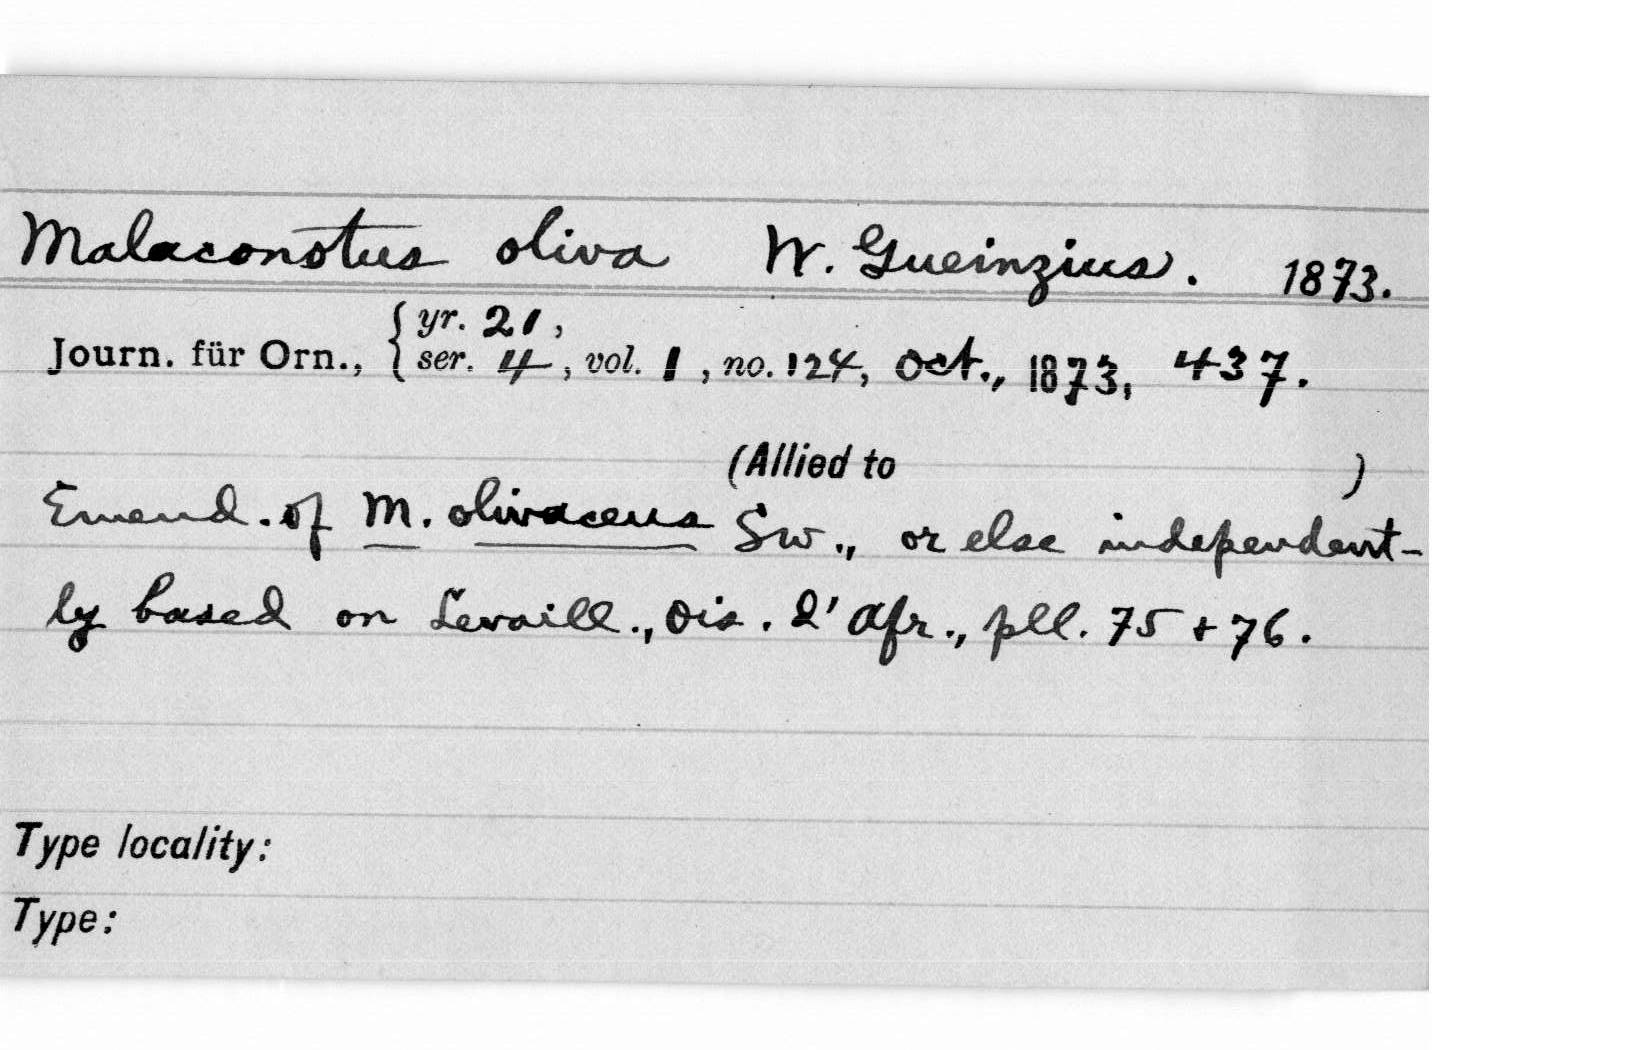 Malaconotus oliva W. Gueinzius. 1873.
Journ. für Orn., { yr. 21,
ser. 4, vol. 1, no. 124, Oct., 1873, 437.
(Allied to )
Emend. of M. olivaceus Sw., or else independent-
ly based on Levaill., Ois. d'Afr., pll. 75 + 76.
Type locality:
Type: